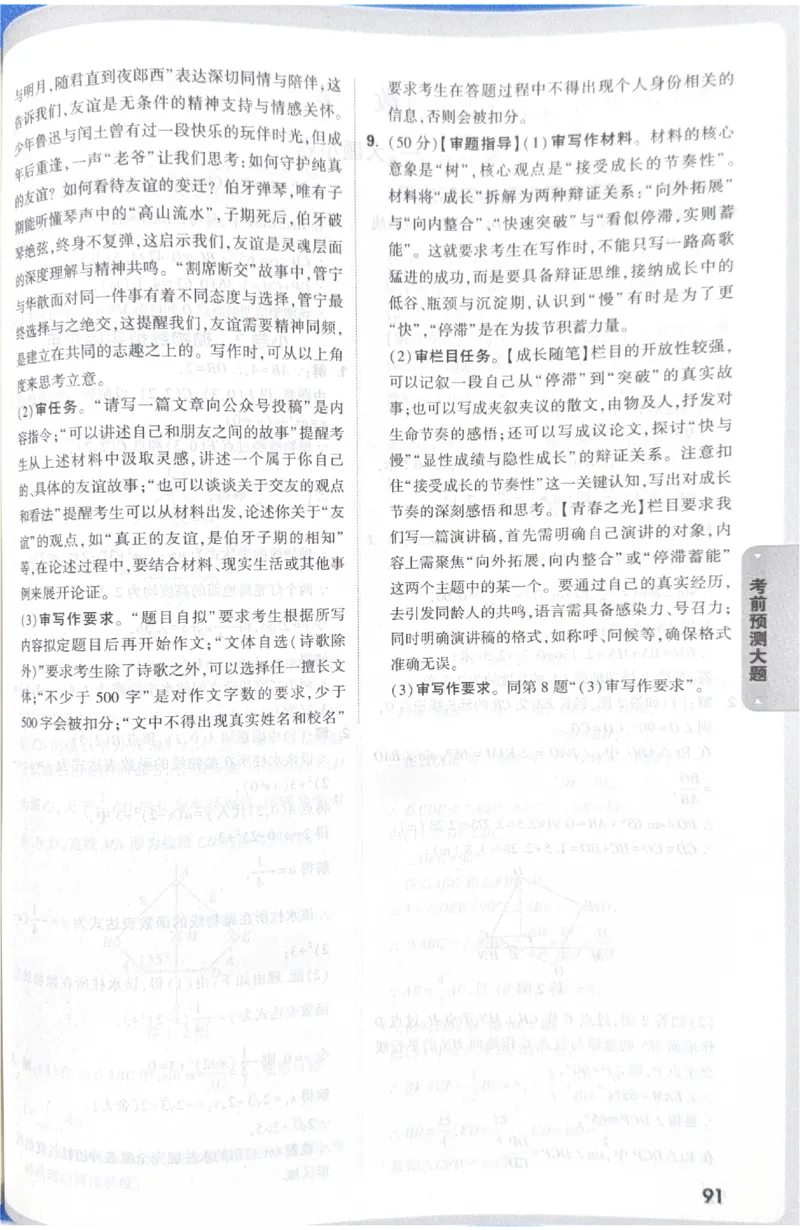 与明月,随君直到夜郎西”表达深切同情与陪伴,这
告诉我们,友谊是无条件的精神支持与情感关怀。
少年鲁迅与闰土曾有过一段快乐的玩伴时光,但成
年后重逢,一声“老爷”让我们思考:如何守护纯真
的友谊?如何看待友谊的变迁?伯牙弹琴,唯有子
期能听懂琴声中的“高山流水”,子期死后,伯牙破
琴绝弦,终身不复弹,这启示我们,友谊是灵魂层面
的深度理解与精神共鸣。“割席断交”故事中,管宁
与华歆面对同一件事有着不同态度与选择,管宁最
终选择与之绝交,这提醒我们,友谊需要精神同频,
是建立在共同的志趣之上的。写作时,可从以上角
度来思考立意。
(2)审任务。“请写一篇文章向公众号投稿”是内
容指令;“可以讲述自己和朋友之间的故事”提醒考
生从上述材料中汲取灵感,讲述一个属于你自己
的、具体的友谊故事;“也可以谈谈关于交友的观点
和看法”提醒考生可以从材料出发,论述你关于“友
谊”的观点,如“真正的友谊,是伯牙子期的相知”
等,在论述过程中,要结合材料、现实生活或其他事
例来展开论证。
(3)审写作要求。“题目自拟”要求考生根据所写
内容拟定题目后再开始作文;“文体自选(诗歌除
外)”要求考生除了诗歌之外,可以选择任一擅长文
体;“不少于 500 字”是对作文字数的要求,少于
500字会被扣分;“文中不得出现真实姓名和校名”
要求考生在答题过程中不得出现个人身份相关的
信息,否则会被扣分。
9. (50分)【审题指导】(1)审写作材料。材料的核心
意象是“树”,核心观点是“接受成长的节奏性”。
材料将“成长”拆解为两种辩证关系:“向外拓展”
与“向内整合”、“快速突破”与“看似停滞,实则蓄
能”。这就要求考生在写作时,不能只写一路高歌
猛进的成功,而是要具备辩证思维,接纳成长中的
低谷、瓶颈与沉淀期,认识到“慢”有时是为了更
“快”,“停滞”是在为拔节积蓄力量。
(2)审栏目任务。【成长随笔】栏目的开放性较强,
可以记叙一段自己从“停滞”到“突破”的真实故
事;也可以写成夹叙夹议的散文,由物及人,抒发对
生命节奏的感悟;还可以写成议论文,探讨“快与
慢”“显性成绩与隐性成长”的辩证关系。注意扣
住“接受成长的节奏性”这一关键认知,写出对成长
节奏的深刻感悟和思考。【青春之光】栏目要求我
们写一篇演讲稿,首先需明确自己演讲的对象,内
容上需聚焦“向外拓展,向内整合”或“停滞蓄能”
这两个主题中的某一个。要通过自己的真实经历,
去引发同龄人的共鸣,语言需具备感染力、号召力;
同时明确演讲稿的格式,如称呼、问候等,确保格式
准确无误。
(3)审写作要求。同第8题“(3)审写作要求”。
考前预测大题
91